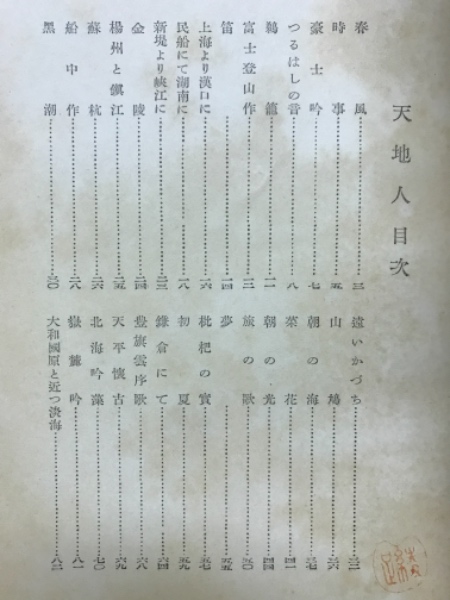 天地人目次
春風……三
時事……五
豪士吟……七
つるはしの音……八
鷄籠……一一
富士登山作……一二
笛……一四
上海より漢口に……一六
民船にて湖南に……一八
新堤より峽江に……二三
金陵……二四
楊州と鎭江……二五
蘇杭……二六
船中作……二八
黑潮……三〇
遠いかづち……三二
山鳩……三六
朝の海……三七
菜花……四一
朝の光……四四
旅の歌……五〇
夢……五五
枇杷の實……五七
初夏……五九
鎌倉にて……六四
豊旗雲序歌……六八
天平懷古……六九
北海吟藻……七〇
嶽麓吟……八一
大和國原と近つ淡海……八二